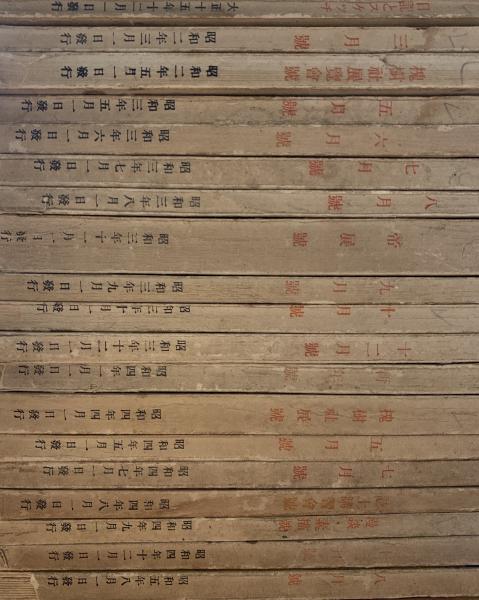 日記とスケッチ 大正十五年十二月一日發行
三月號 昭和二年三月一日發行
槐樹社展覽會號 昭和二年五月一日發行
五月號 昭和三年五月一日發行
六月號 昭和三年六月一日發行
七月號 昭和三年七月一日發行
八月號 昭和三年八月一日發行
帝展號 昭和三年十一月一日發行
九月號 昭和三年九月一日發行
十月號 昭和三年十月一日發行
十二月號 昭和三年十二月一日發行
號 昭和四年一月一日發行
槐樹社展號 昭和四年四月一日發行
五月號 昭和四年五月一日發行
七月號 昭和四年七月一日發行
講習會號 昭和四年八月一日發行
昭和四年九月一日發行
昭和四年十二月一日發行
八月號 昭和五年八月一日發行